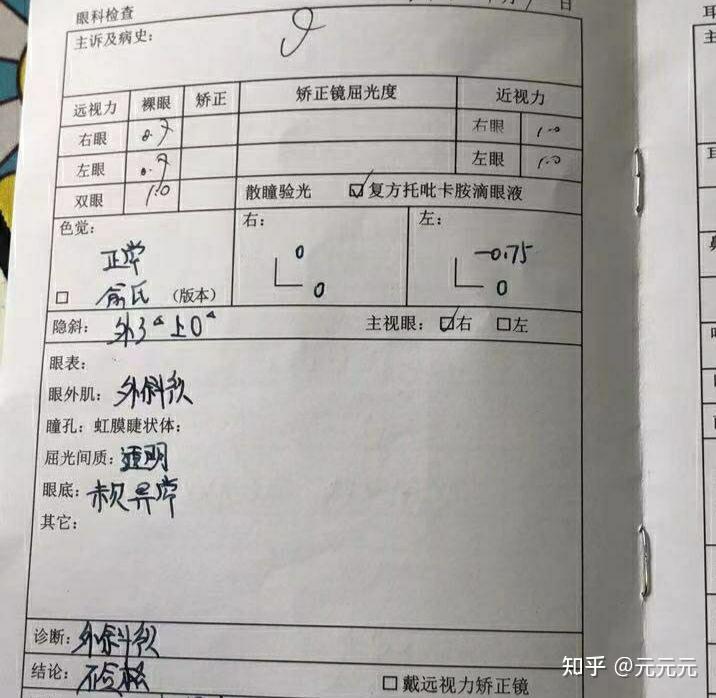 眼科检查
日
主诉及病史:
远视力 裸眼 矫正 矫正镜屈光度 近视力
右眼 0.9 右眼 1.0
左眼 0.9 左眼 1.0
双眼 1.0 散瞳验光 ☑复方托吡卡胺滴眼液
色觉: 右: 左:
正常 0 -0.75
□ 俞氏 (版本) 0 0
隐斜: 外3△ 上0△ 主视眼: ☑右 □左
眼表:
眼外肌: 外斜视
瞳孔: 虹膜睫状体:
屈光间质: 透明
眼底: 未见异常
其它:
诊断: 外斜视
结论: 不合格 □戴远视力矫正镜
知乎 @元元元